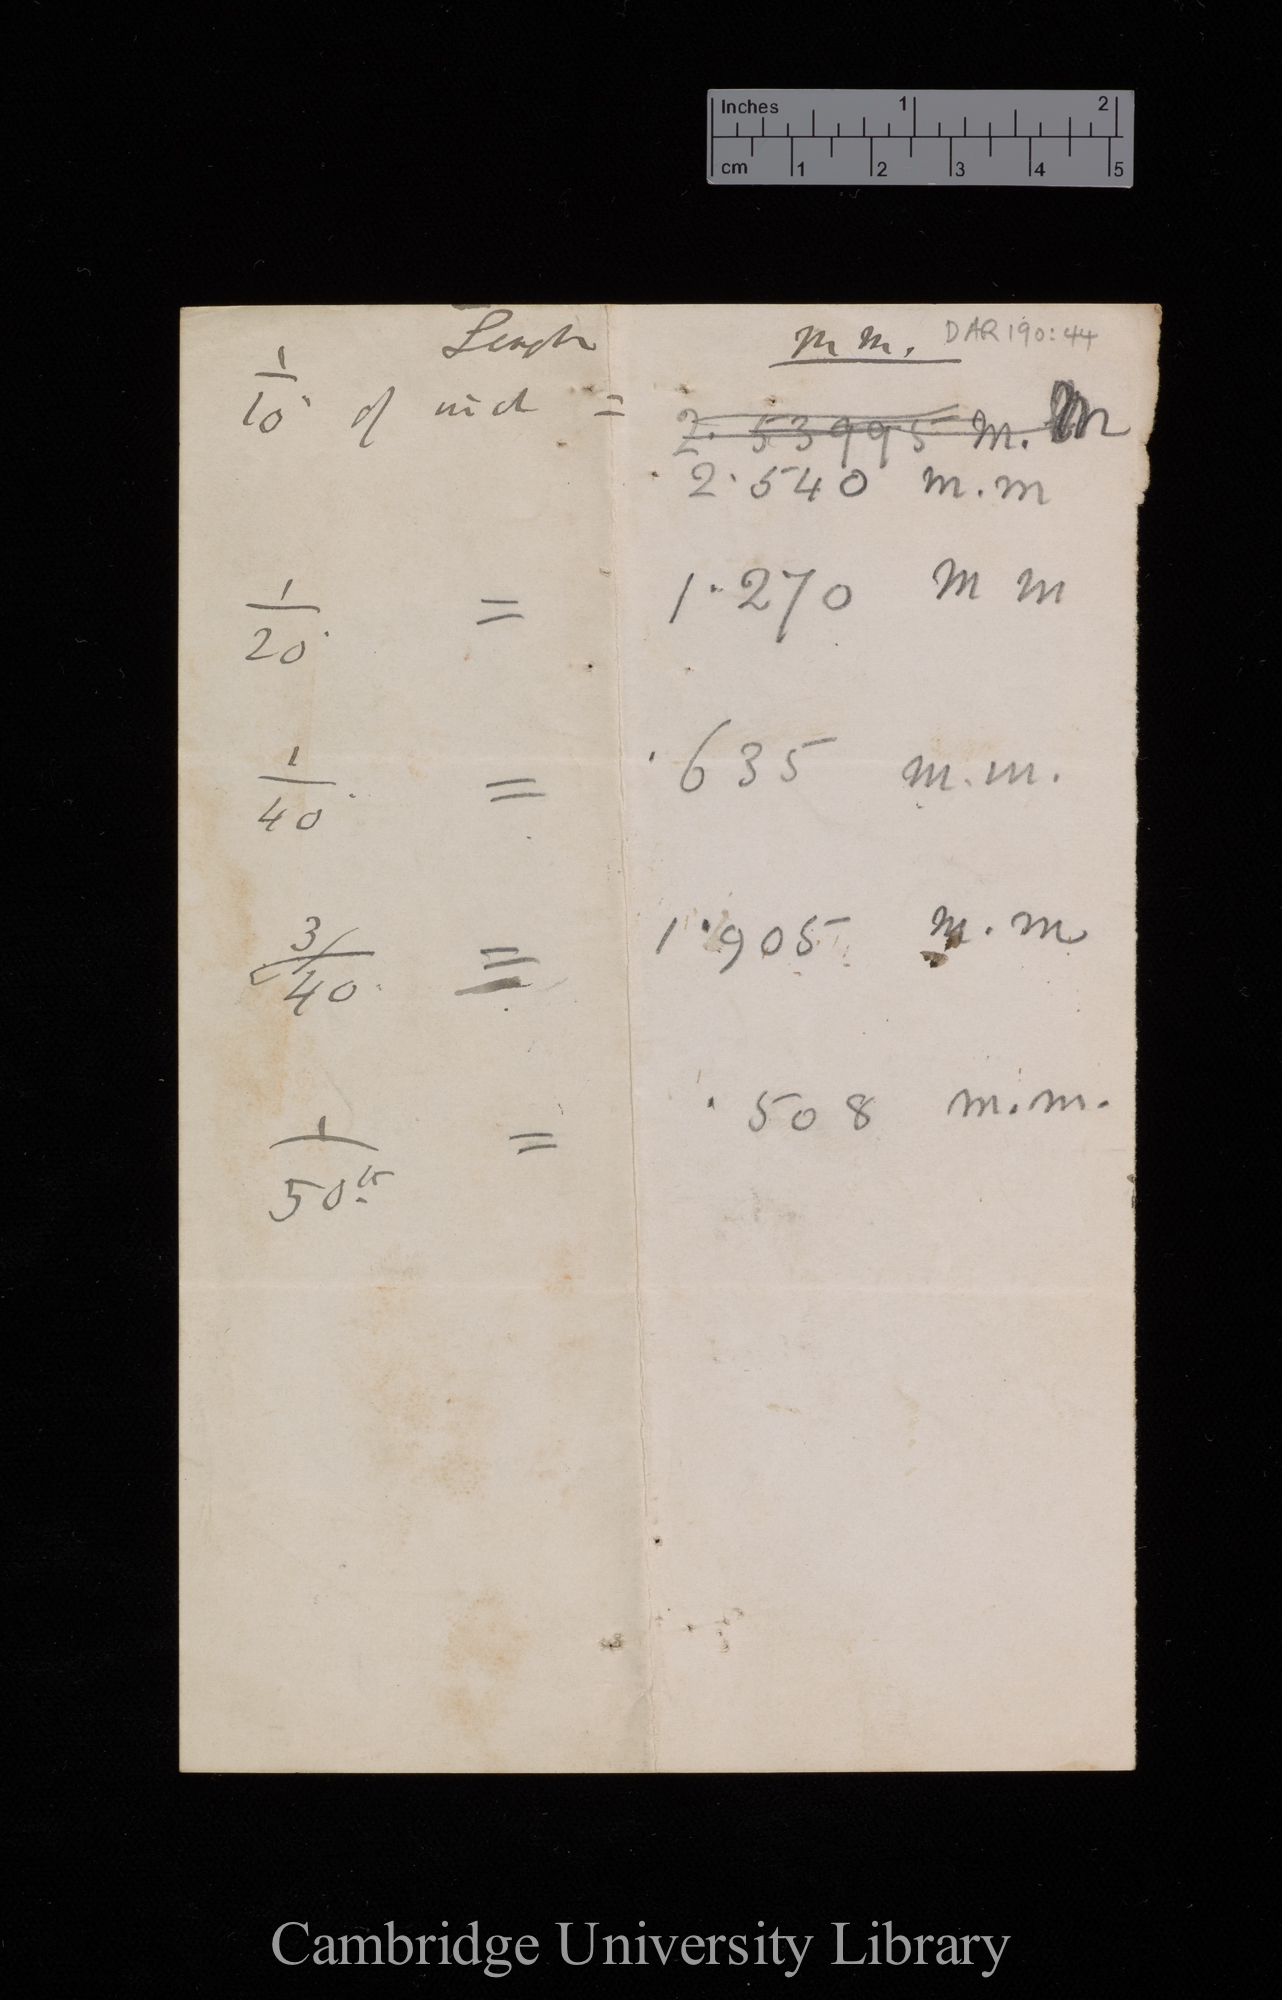 Inches 1 2
cm 1 2 3 4 5
Length m m. DAR 190:44
1/10 of inch = 2.53995 m. m
2.540 m.m
1/20 = 1.270 m m
1/40 = .635 m.m.
3/40 = 1.905 m.m
1/50th = .508 m.m.
Cambridge University Library